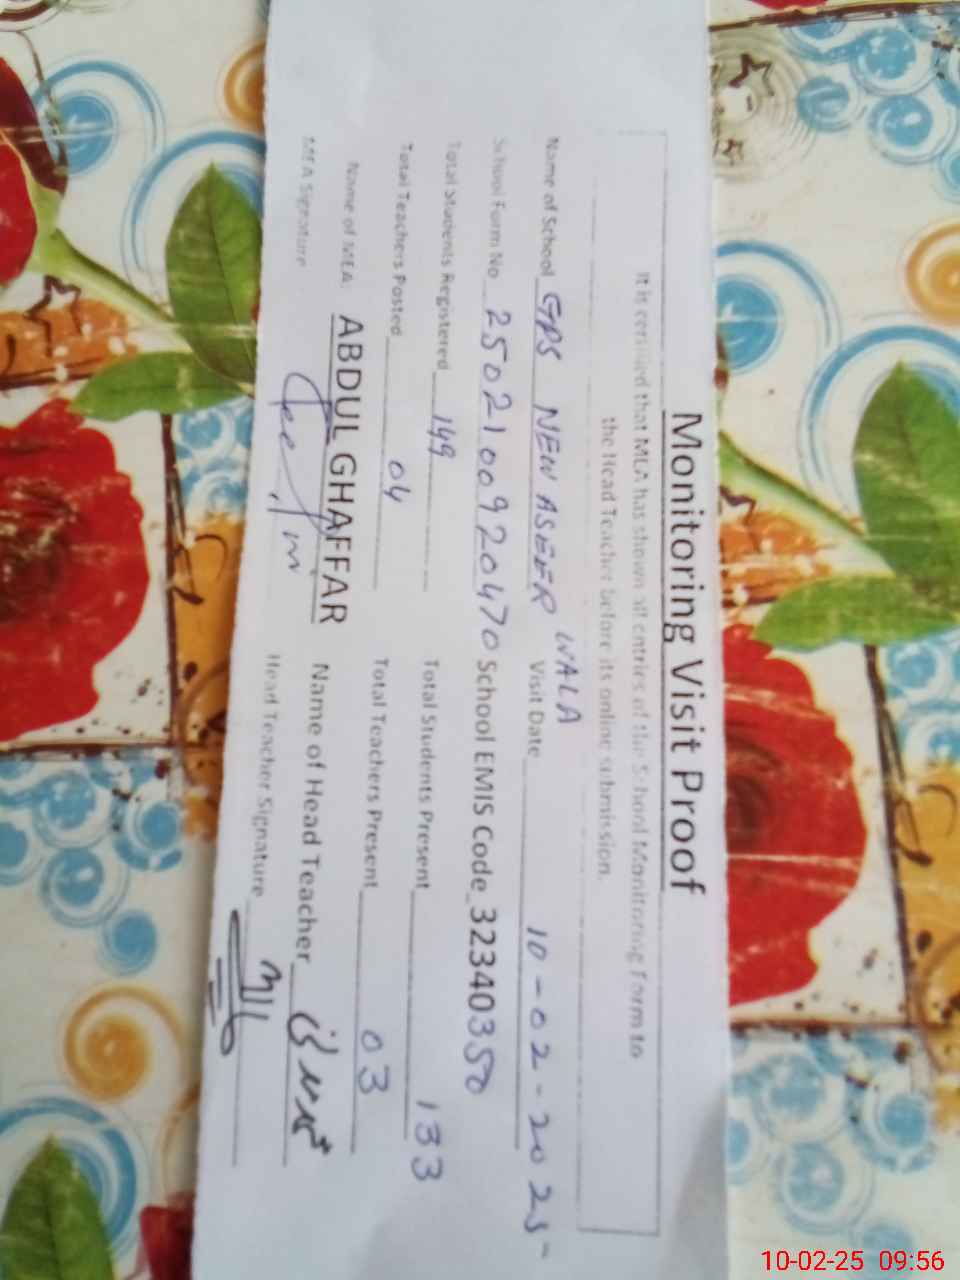 Monitoring Visit Proof
It is certified that MEA has shown all entries of the School Monitoring Form to
the Head Teacher before its online submission.
Name of School GPS NEW ASEER WALA Visit Date 10-02-2025
School Form No 2502100920470 School EMIS Code 32340350
Total Students Registered 149 Total Students Present 133
Total Teachers Posted 04 Total Teachers Present 03
Name of MEA: ABDUL GHAFFAR Name of Head Teacher
MEA Signature Head Teacher Signature
10-02-25 09:56